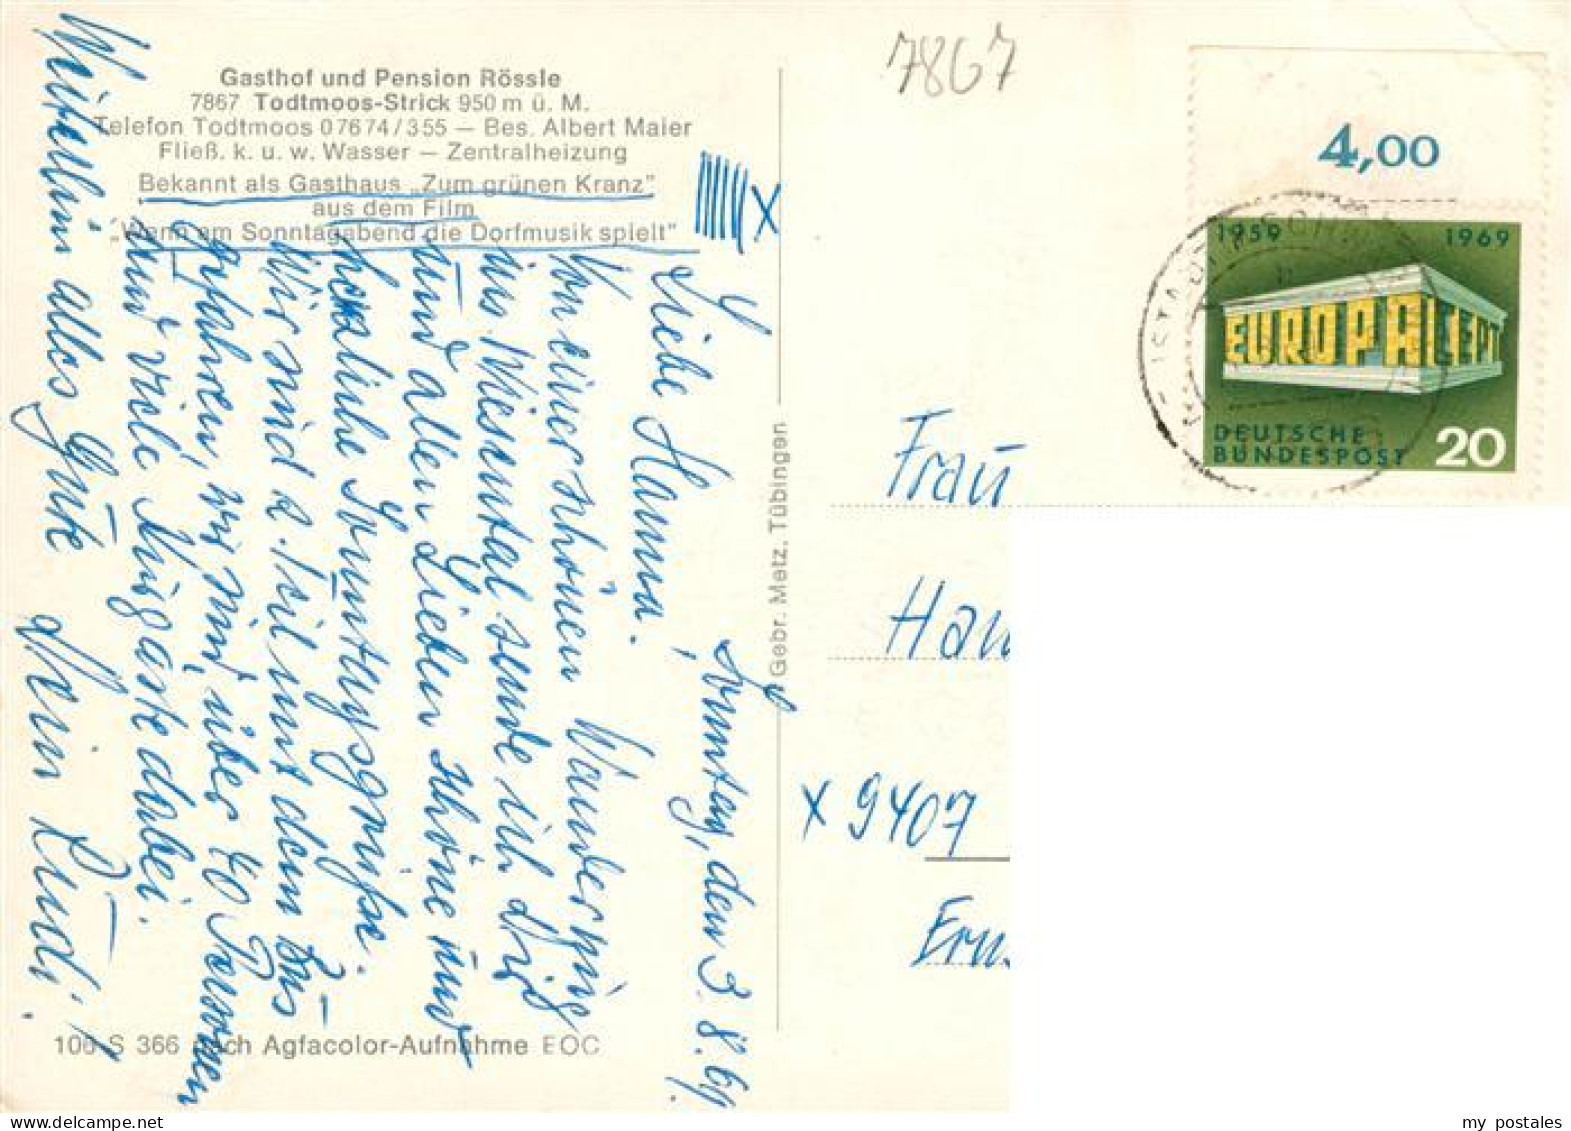 Gasthof und Pension Rössle
7867 Todtmoos-Strick 950 m ü. M.
Telefon Todtmoos 07674/355 — Bes. Albert Maier
Fließ. k. u. w. Wasser — Zentralheizung
Bekannt als Gasthaus „Zum grünen Kranz"
aus dem Film
„Wenn am Sonntagabend die Dorfmusik spielt"
X
Sonntag, den 3. 8. 69.
Liebe Hanna.
Von einer schönen Wanderung
ins Wiesental sende ich Dir
und allen Lieben schöne und
herzliche Sonntagsgrüße.
Wir sind z. Teil mit dem Bus
gefahren, wir sind über 40 Personen
und viele Kurgäste dabei.
Weiterhin alles Gute
Dein Rudi!
106 S 366 nach Agfacolor-Aufnahme EOC
Gebr. Metz, Tübingen
7867
4,00
1959 1969
EUROPA CEPT
DEUTSCHE
BUNDESPOST 20
Frau
Han
x 9407
Ern
my postales